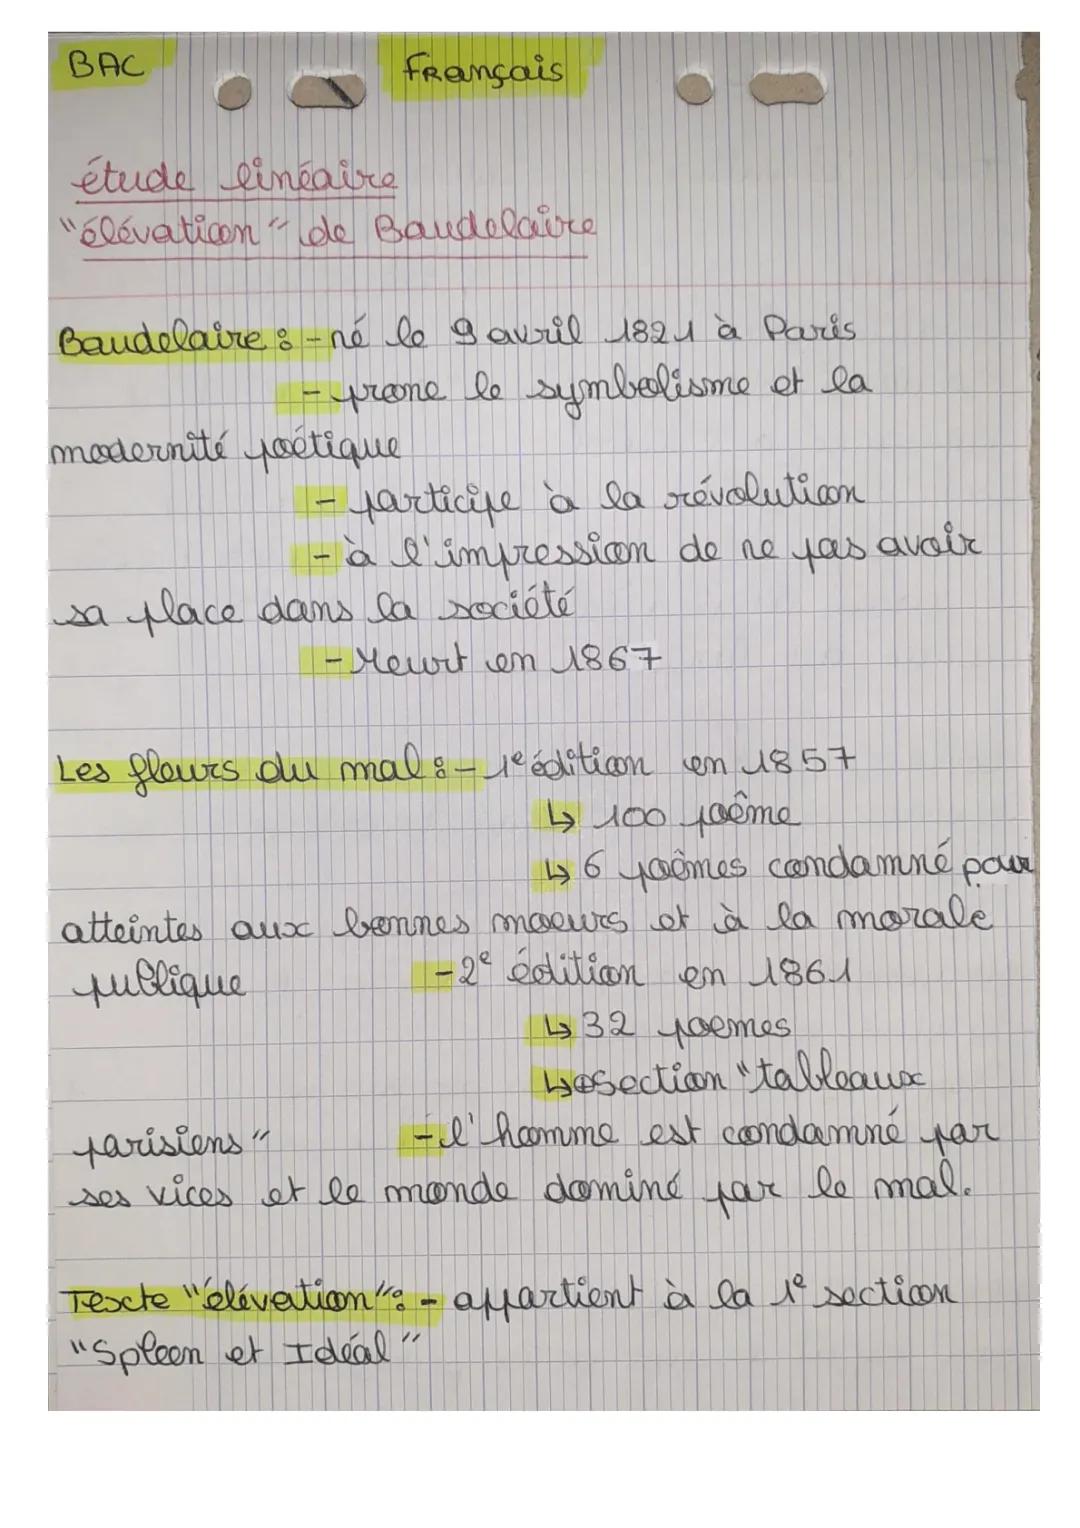 BAC Français
étude linéaire
"élévation" de Baudelaire
Baudelaire : - né le 9 avril 1821 à Paris
- prone le symbolisme et la
modernité poétique
- participe à la révolution
- à l'impression de ne pas avoir
sa place dans la société
- Meurt en 1867
Les fleurs du mal : - 1e édition en 1857
↳ 100 poême
↳ 6 poèmes condamné pour
atteintes aux bonnes moeurs et à la morale
publique - 2e édition en 1861
↳ 32 poemes
↳ section "tableaux
parisiens" - l'homme est condamné par
ses vices et le monde dominé par le mal.
Texte "élévation" : - appartient à la 1e section
"Spleen et Idéal"